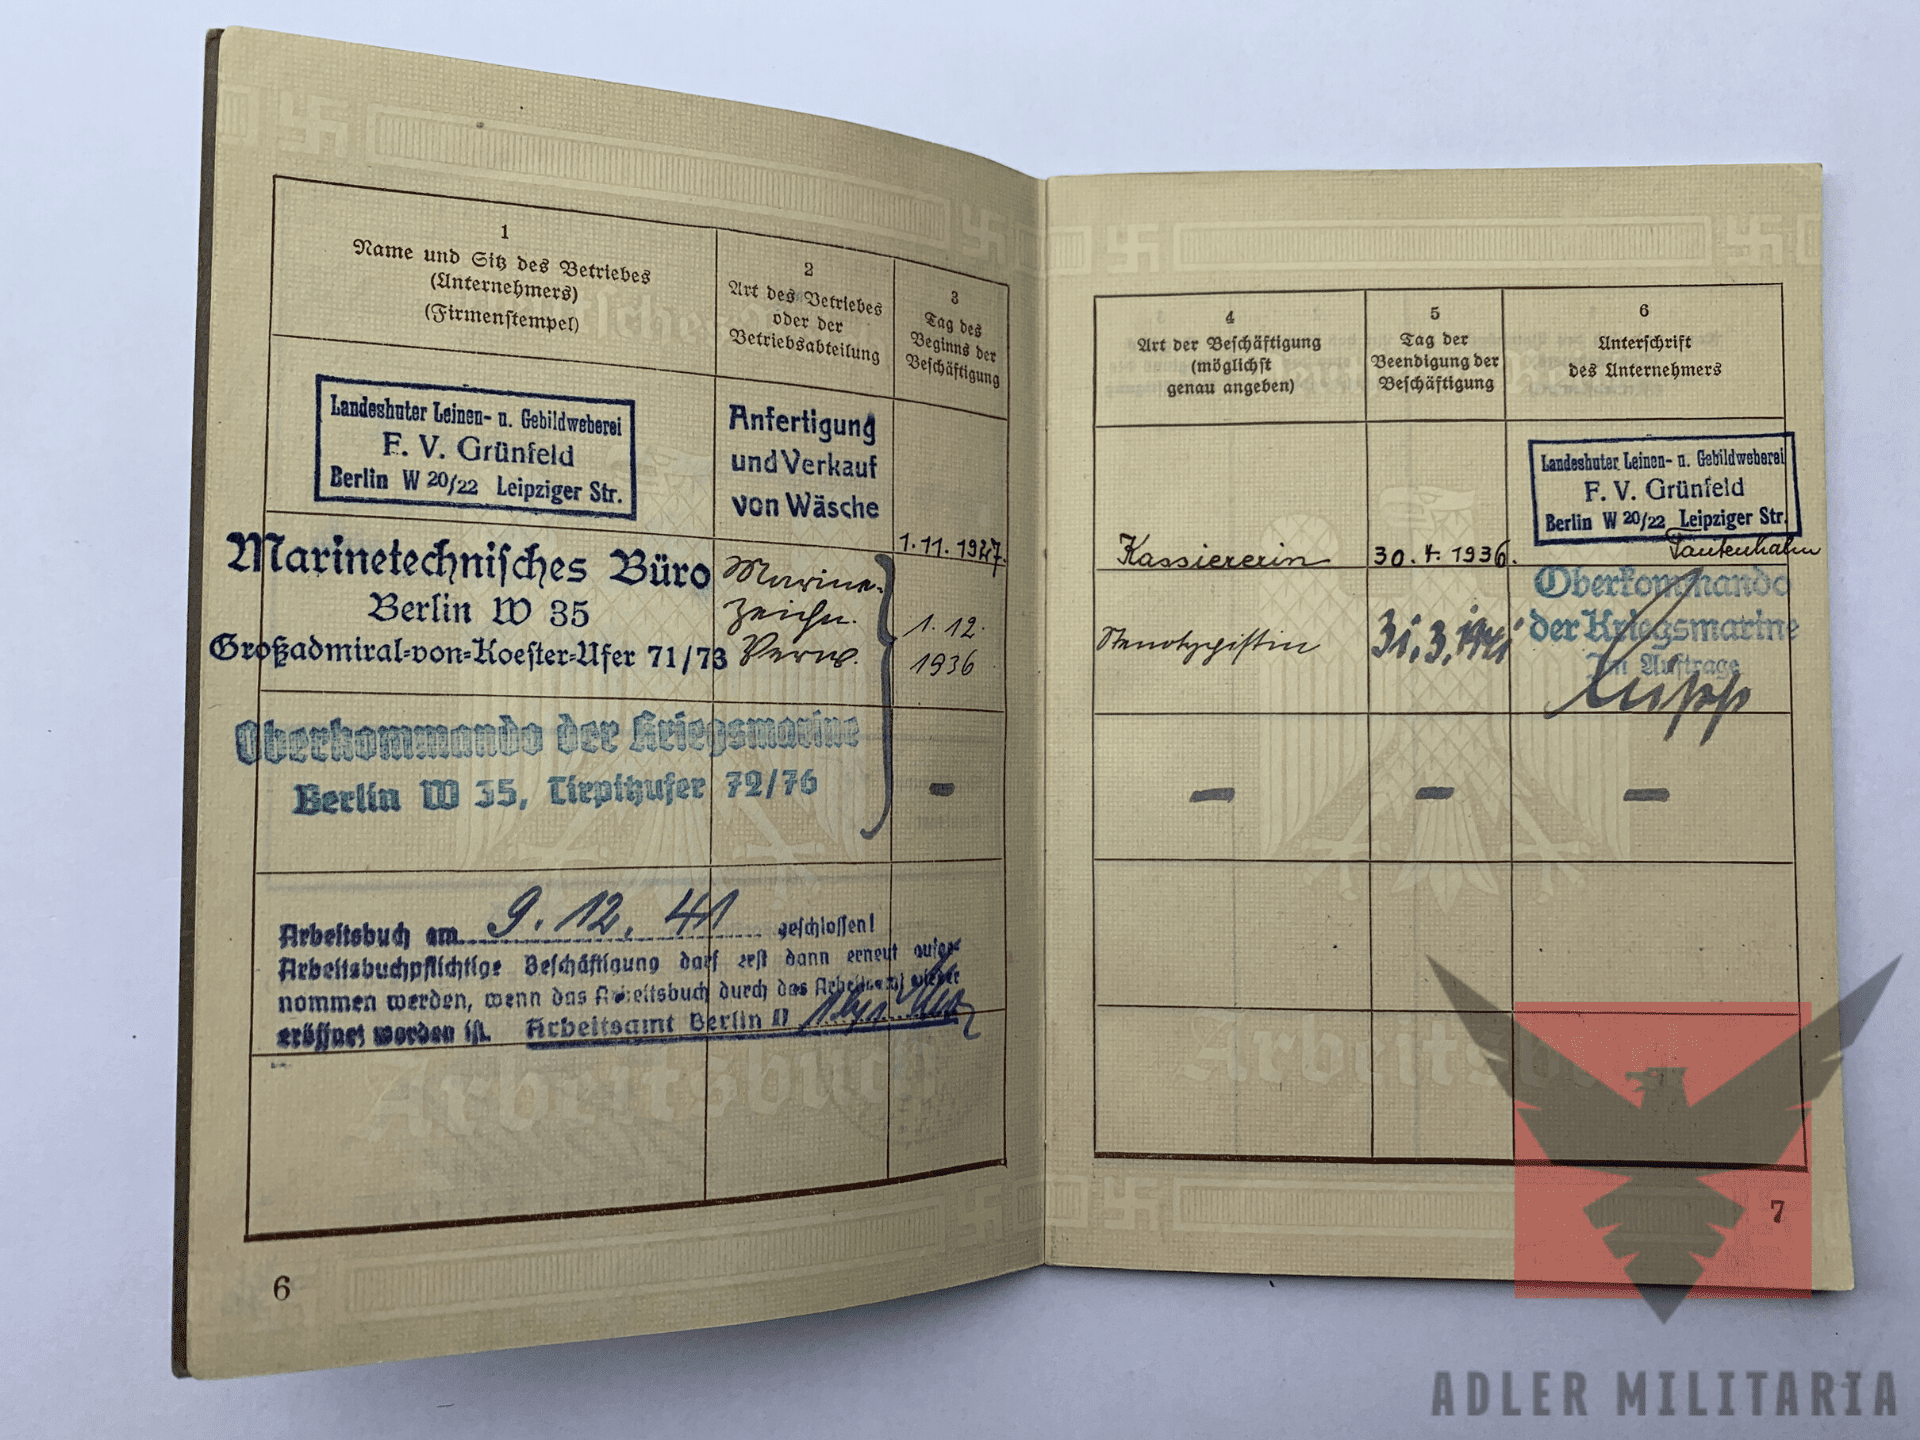 1
Name und Sitz des Betriebes
(Unternehmers)
(Firmenstempel)
2
Art des Betriebes
oder der
Betriebsabteilung
3
Tag des
Beginns der
Beschäftigung
Landeshuter Leinen- u. Gebildweberei
F. V. Grünfeld
Berlin W 20/22 Leipziger Str.
Anfertigung
und Verkauf
von Wäsche
1.11.1927.
Marinetechnisches Büro
Berlin W 35
Großadmiral-von-Koester-Ufer 71/73
Marine-
zeichn.
Verw.
1.12.
1936
Oberkommando der Kriegsmarine
Berlin W 35, Tirpitzufer 72/76
–
Arbeitsbuch am 9.12.41 geschlossen!
Arbeitsbuchpflichtige Beschäftigung darf erst dann erneut aufge-
nommen werden, wenn das Arbeitsbuch durch das Arbeitsamt wieder
eröffnet worden ist. Arbeitsamt Berlin
Arbeitsbuch
6
4
Art der Beschäftigung
(möglichst
genau angeben)
5
Tag der
Beendigung der
Beschäftigung
6
Unterschrift
des Unternehmers
Landeshuter Leinen- u. Gebildweberei
F. V. Grünfeld
Berlin W 20/22 Leipziger Str.
Kassiererin
30.4.1936.
Lautenhahn
Stenotypistin
31.3.1941
Oberkommando
der Kriegsmarine
Im Auftrage
– – –
Arbeitsb
7
ADLER MILITARIA